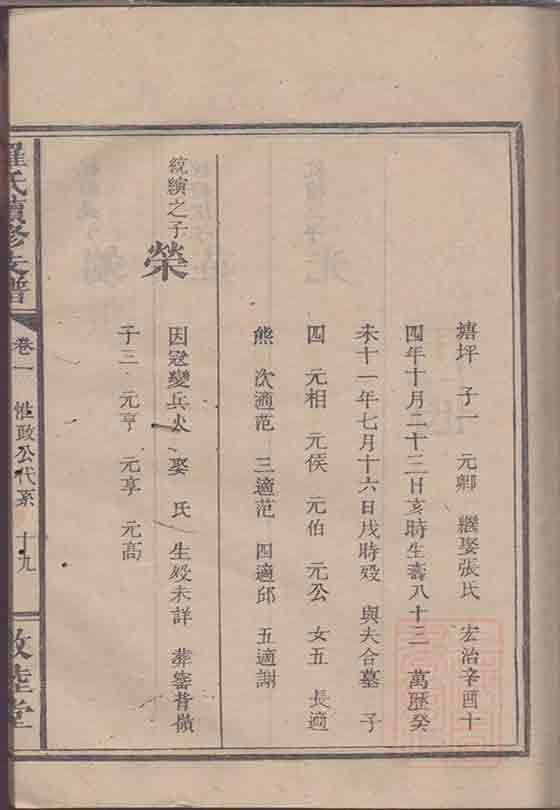 塘坪 子一 元卿 繼娶張氏 宏治辛酉十
四年十月二十二日亥時生壽八十三 萬歷癸
未十一年七月十六日戌時殁 與夫合墓 子
四 元相 元侯 元伯 元公 女五 長適
熊 次適范 三適范 四適邱 五適謝
統演之子
榮
因冦變兵火 娶 氏 生殁未詳 葬窑背嶺
子三 元亨 元享 元高
羅氏續修支譜
卷一 惟政公代系 十九
敦睦堂